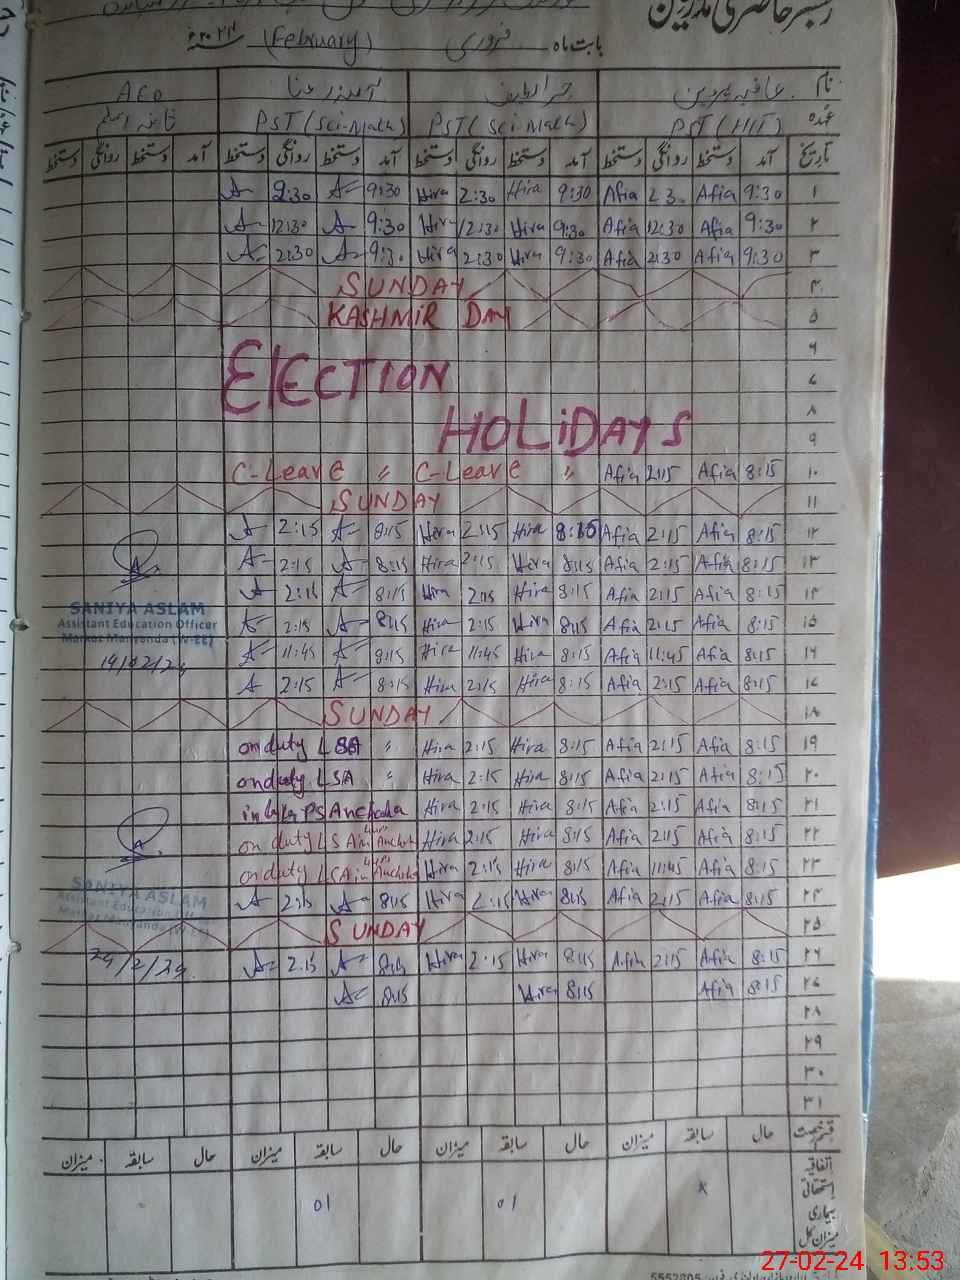 رجسٹر حاضری مدرسین
بابت ماہ فروری (February) ۲۰۲۴ء
نام عافیہ پروین حرا لطیف آمنہ رضا AEO
عہدہ PST (HIT) PST (Sci-Math) PST (Sci-Math) ثانیہ اسلم
تاریخ آمد دستخط روانگی دستخط آمد دستخط روانگی دستخط آمد دستخط روانگی دستخط آمد دستخط روانگی دستخط
۱ 9:30 Afia 2:30 Afia 9:30 Hira 2:30 Hira 9:30 A 2:30 A
۲ 9:30 Afia 12:30 Afia 9:30 Hira 12:30 Hira 9:30 A 12:30 A
۳ 9:30 Afia 2:30 Afia 9:30 Hira 2:30 Hira 9:30 A 2:30 A
۴ SUNDAY
۵ KASHMIR DAY
۶
۷ ELECTION
۸
۹ HOLIDAYS
۱۰ 8:15 Afia 2:15 Afia C-Leave " C-Leave "
۱۱ SUNDAY
۱۲ 8:15 Afia 2:15 Afia 8:15 Hira 2:15 Hira 8:15 A 2:15 A
۱۳ 8:15 Afia 2:15 Afia 8:15 Hira 2:15 Hira 8:15 A 2:15 A
۱۴ 8:15 Afia 2:15 Afia 8:15 Hira 2:15 Hira 8:15 A 2:15 A
۱۵ 8:15 Afia 2:15 Afia 8:15 Hira 2:15 Hira 8:15 A 2:15 A
۱۶ 8:15 Afia 11:45 Afia 8:15 Hira 11:45 Hira 8:15 A 11:45 A
۱۷ 8:15 Afia 2:15 Afia 8:15 Hira 2:15 Hira 8:15 A 2:15 A
SANIYA ASLAM
Assistant Education Officer
Markaz Manyanda (W-EE)
19/02/24
۱۸ SUNDAY
۱۹ 8:15 Afia 2:15 Afia 8:15 Hira 2:15 Hira on duty LSA "
۲۰ 8:15 Afia 2:15 Afia 8:15 Hira 2:15 Hira on duty LSA "
۲۱ 8:15 Afia 2:15 Afia 8:15 Hira 2:15 Hira PS Anchoha
۲۲ 8:15 Afia 2:15 Afia 8:15 Hira 2:15 Hira on duty LSA in
۲۳ 8:15 Afia 11:45 Afia 8:15 Hira 2:15 Hira on duty LSA in
۲۴ 8:15 Afia 2:15 Afia 8:15 Hira 2:15 Hira 8:15 A 2:15 A
SANIYA ASLAM
Assistant Education Officer
Markaz Manyanda (W-EE)
24/2/24
۲۵ SUNDAY
۲۶ 8:15 Afia 2:15 Afia 8:15 Hira 2:15 Hira 8:15 A 2:15 A
۲۷ 8:15 Afia 8:15 Hira 8:15 A
۲۸
۲۹
۳۰
۳۱
قسم رخصت حال سابقہ میزان حال سابقہ میزان حال سابقہ میزان حال سابقہ میزان
اتفاقیہ
استحقاقی x 01 01
بیماری
میزان کل
27-02-24 13:53